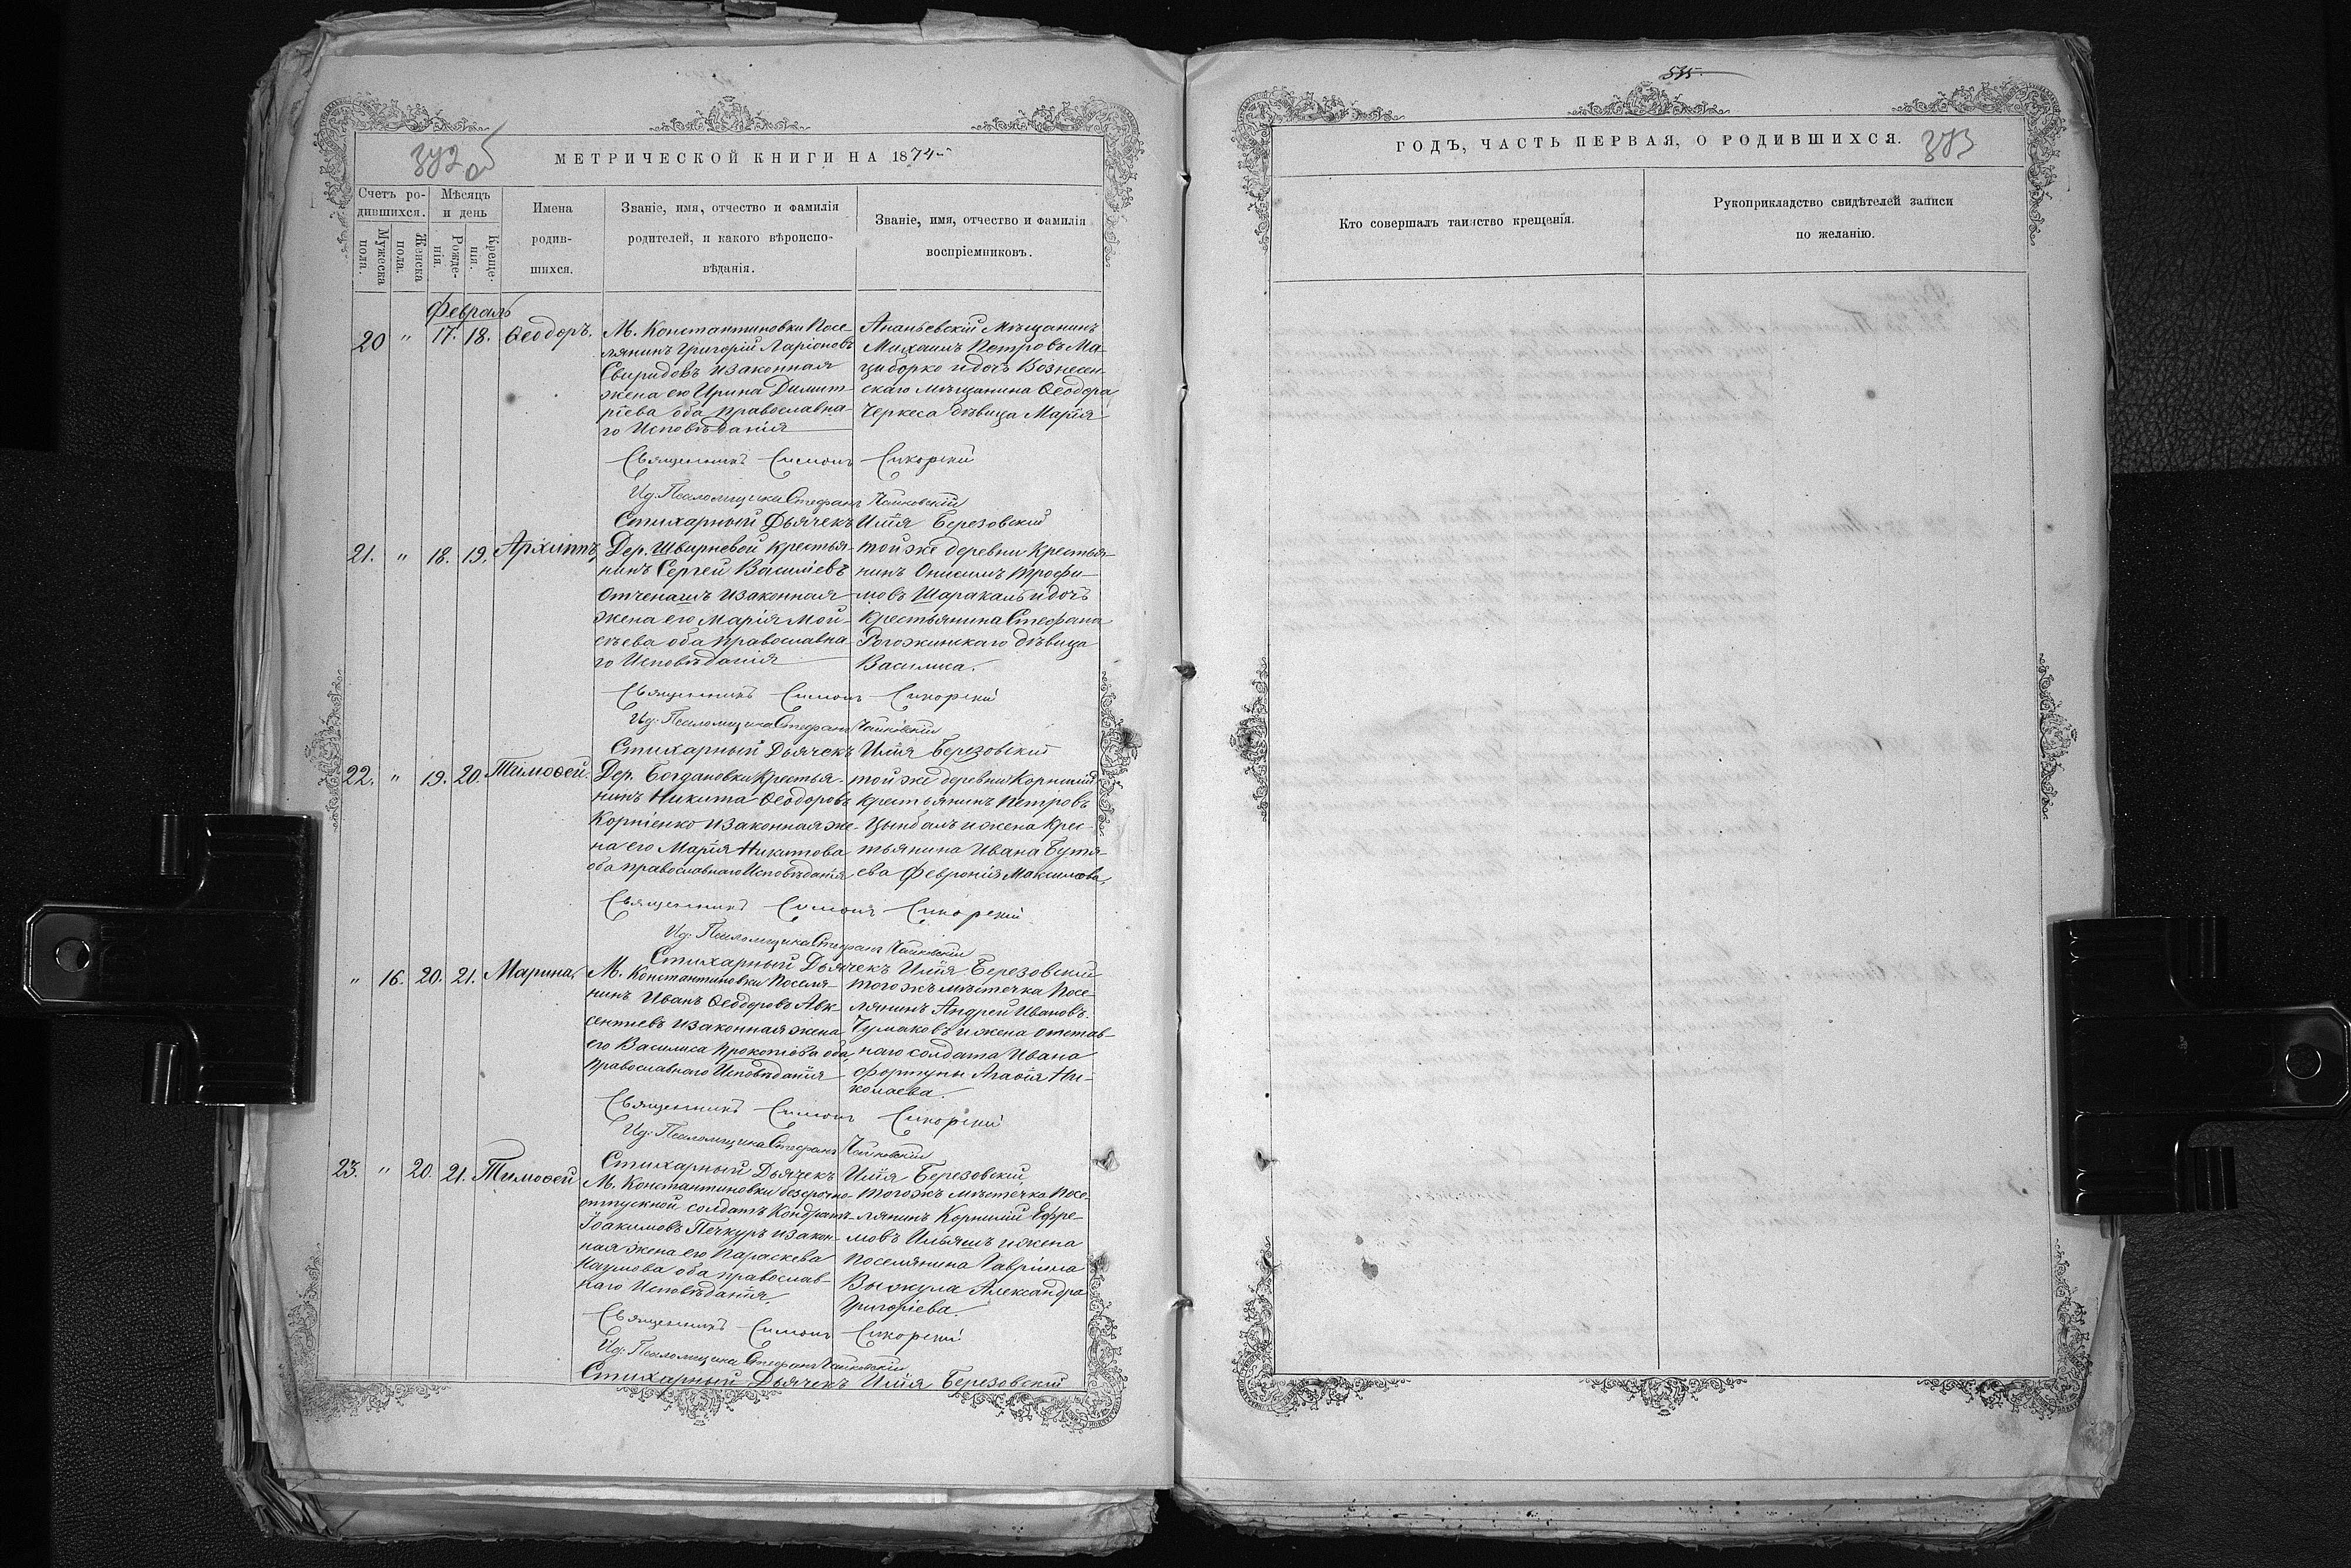 535.
382 об
МЕТРИЧЕСКОЙ КНИГИ НА 1874
ГОДЪ, ЧАСТЬ ПЕРВАЯ, О РОДИВШИХСЯ.
383
Счетъ ро-
дившихся.
Мужеска
пола.
Женска
пола.
Мѣсяцъ
и день
Рожде-
нія.
Креще-
нія.
Имена
родив-
шихся.
Званіе, имя, отчество и фамилія
родителей, и какого вѣроиспо-
вѣданія.
Званіе, имя, отчество и фамилія
воспріемниковъ.
Кто совершалъ таинство крещенія.
Рукоприкладство свидѣтелей записи
по желанію.
Февраль
20 " 17. 18. Ѳеодоръ.
М. Константиновки Посе-
лянинъ Григорій Ларіоновъ
Свиридовъ и законная
жена его Ирина Димит-
ріева оба православна-
го Исповѣданія
Ананьевскій Мѣщанинъ
Михаилъ Петровъ Ма-
циборко и дочь Вознесен-
скаго мѣщанина Ѳеодора
Черкеса дѣвица Марія
Священникъ Симонъ Сикорскій
Ид: Псаломщика Стефанъ Чайковскій
Стихарный Дьячекъ Илія Березовскій
21. " 18. 19. Архиппъ
Дер. Швырневой крестья-
нинъ Сергей Василіевъ
Отченашъ и законная
жена его Марія Мой-
сѣева оба православна-
го Исповѣданія
той же деревни Крестья-
нинъ Онисимъ Трофи-
мовъ Шаракаль и дочь
Крестьянина Стефана
Рогожинскаго дѣвица
Василиса.
Священникъ Симонъ Сикорскій
Ид: Псаломщика Стефанъ Чайковскій
Стихарный Дьячекъ Илія Березовскій
22. " 19. 20. Тимоѳей.
Дер. Богдановки Крестья-
нинъ Никита Ѳеодоровъ
Корніенко и законная же-
на его Марія Никитова
оба православнаго Исповѣданія
той же деревни Корнилій
крестьянинъ Петровъ
Цынбалъ и жена Крес-
тьянина Ивана Бутя-
ева Февронія Максимова,
Священникъ Симонъ Сикорскій
Ид: Псаломщика Стефанъ Чайковскій
Стихарный Дьячекъ Илія Березовскій
" 16. 20. 21. Марина,
М. Константиновки Поселя-
нинъ Иванъ Ѳеодоровъ Авк-
сентіевъ и законная жена
его Василиса Прокопіева оба
православнаго Исповѣданія
того жъ мѣстечка Посе-
лянинъ Андрей Ивановъ
Чумаковъ и жена отстав-
наго солдата Ивана
Фортуны Агаѳія Ни-
колаева.
Священникъ Симонъ Сикорскій
Ид: Псаломщика Стефанъ Чайковскій
Стихарный Дьячекъ Илія Березовскій
23. " 20. 21. Тимоѳей
М. Константиновки безсрочно-
отпускной солдатъ Кондратъ
Іоакимовъ Печкуръ и закон-
ная жена его Параскева
Наумова оба православ-
наго Исповѣданія.
того жъ мѣстечка Посе-
лянинъ Корнилій Ефре-
мовъ Ильяшъ и жена
поселянина Гавріила
Выжула Александра
Григоріева.
Священникъ Симонъ Сикорскій
Ид: Псаломщика Стефанъ Чайковскій
Стихарный Дьячекъ Илія Березовскій